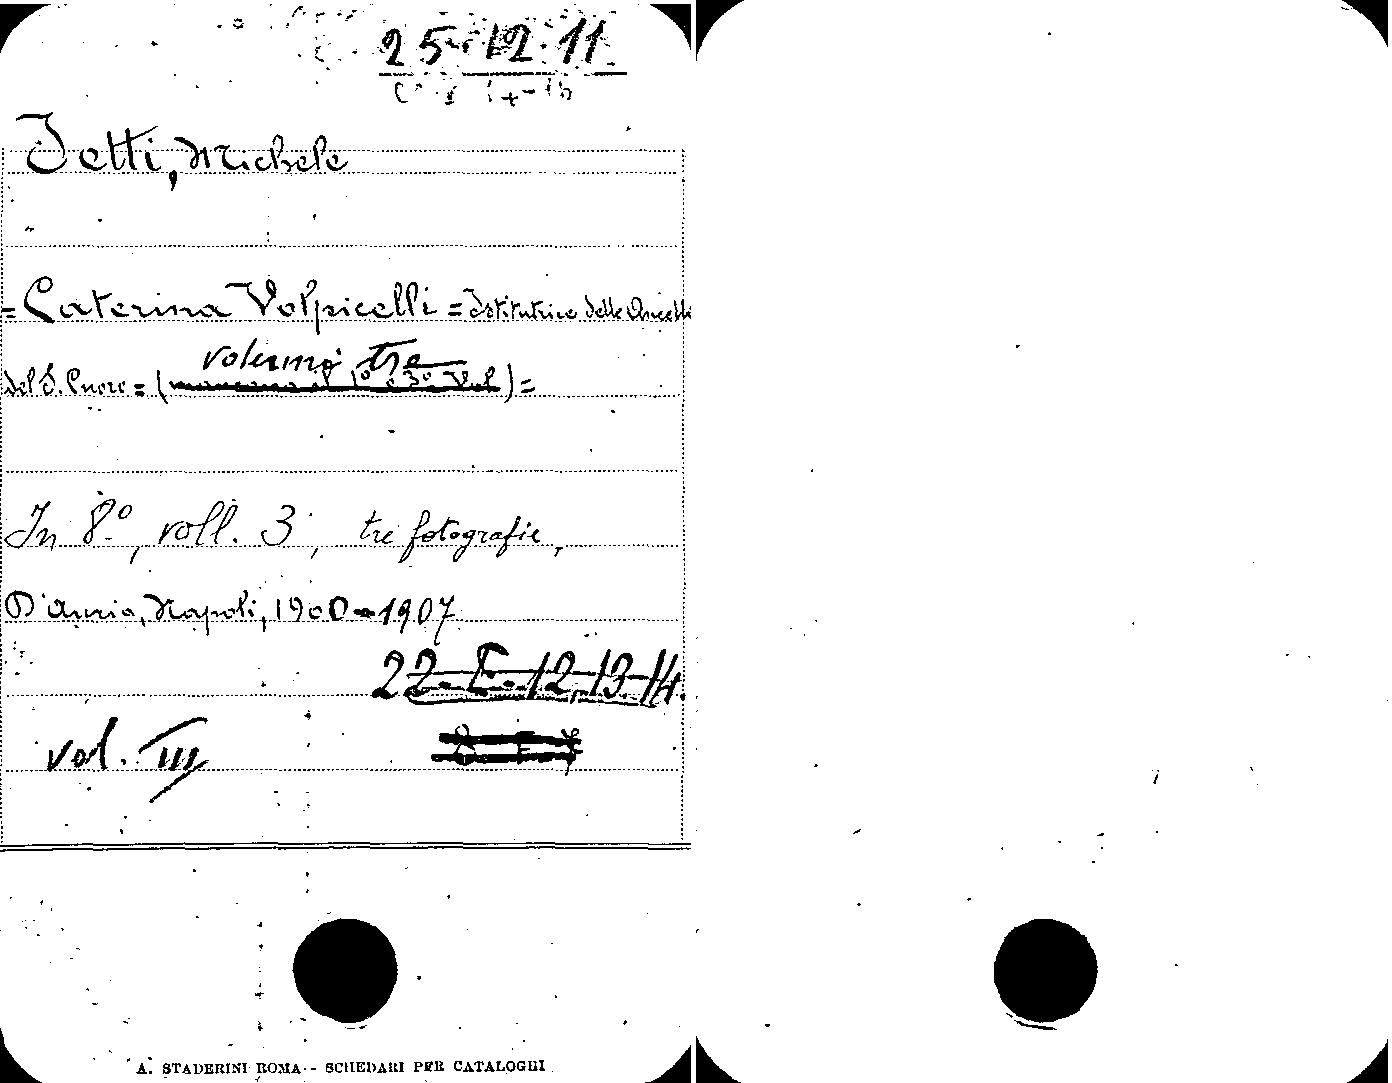 25. 12. 11
Jetti, Michele
= Caterina Volpicelli = Istitutrice delle Ancelle
volumi tre
del S. Cuore = (mancano il 1º e 3º Vol) =
In 8º, voll. 3, tre fotografie,
D'Auria, Napoli, 1900-1907
22. E. 12, 13. 14.
vol. III
A. STADERINI ROMA - SCHEDARI PER CATALOGHI